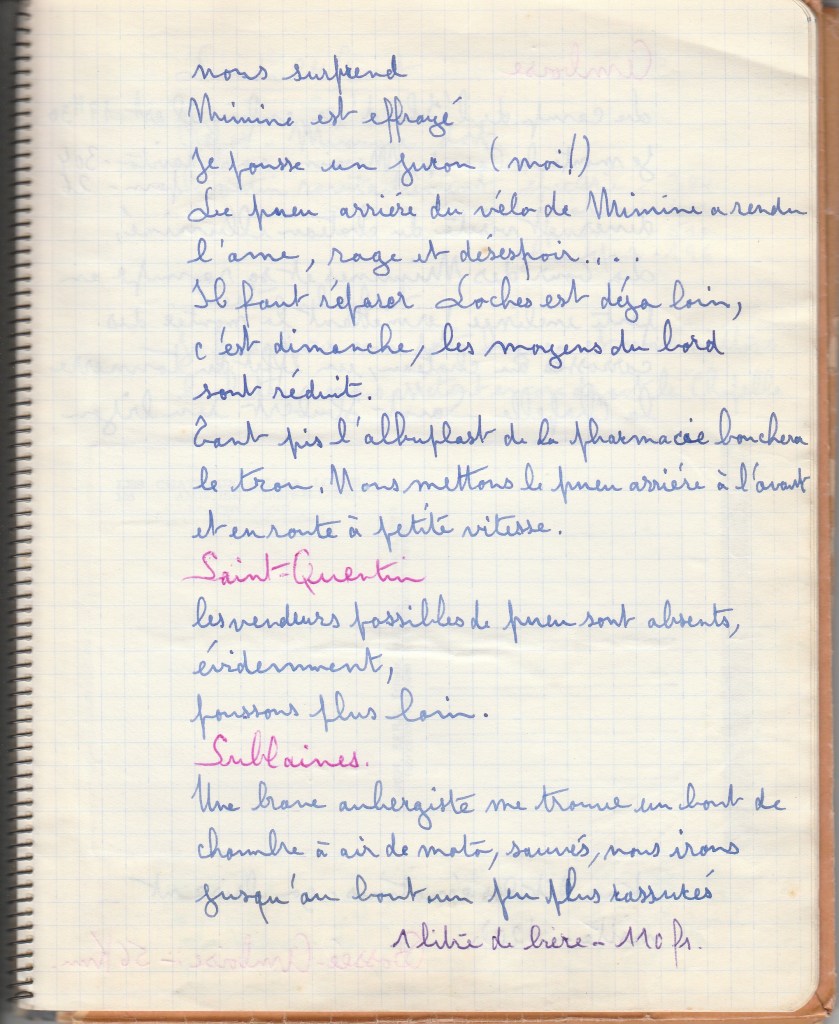 nous surprend
Mimine est effrayé
Je pousse un juron (moi!)
Le pneu arriére du vélo de Mimine a rendu
l'ame, rage et désespoir....
Il faut réparer Loches est déja loin,
c'est dimanche, les moyens du bord
sont réduit.
Tant pis l'albuplast de la pharmacie bouchera
le trou. Nous mettons le pneu arriére à l'avant
et en route à petite vitesse.
Saint-Quentin
les vendeurs possibles de pneu sont absents,
évidemment,
poussons plus loin.
Sublaines.
Une brave aubergiste me trouve un bout de
chambre à air de moto, sauvés, nous irons
jusqu'au bout un peu plus rassurés
1 litre de bière - 110 frs.